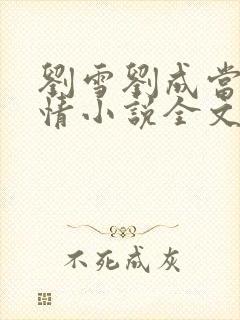 劉雪劉成當
情小說全文
不死成灰